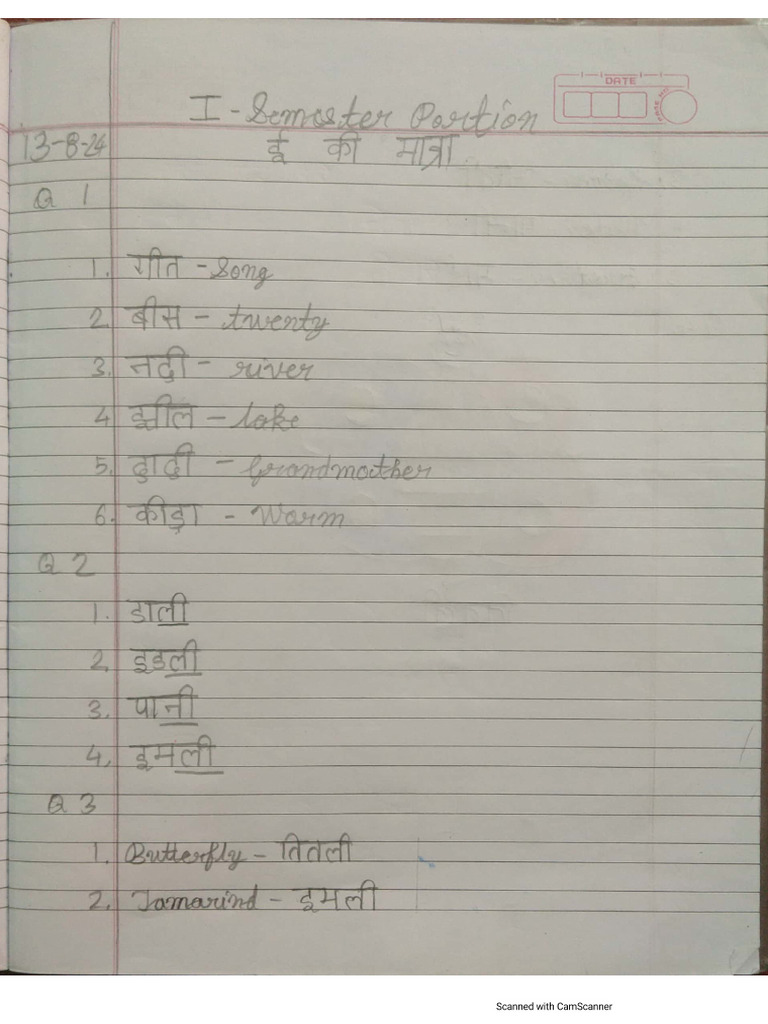 DATE
PAGE NO
I - Semester Portion
13-8-24 ई की मात्रा
Q 1
1. गीत - Song
2. बीस - twenty
3. नदी - river
4 झील - lake
5. दादी - Grandmother
6. कीड़ा - Warm
Q 2
1. डाली
2. इडली
3. पानी
4. इमली
Q 3
1. Butterfly - तितली
2. Tamarind - इमली
Scanned with CamScanner